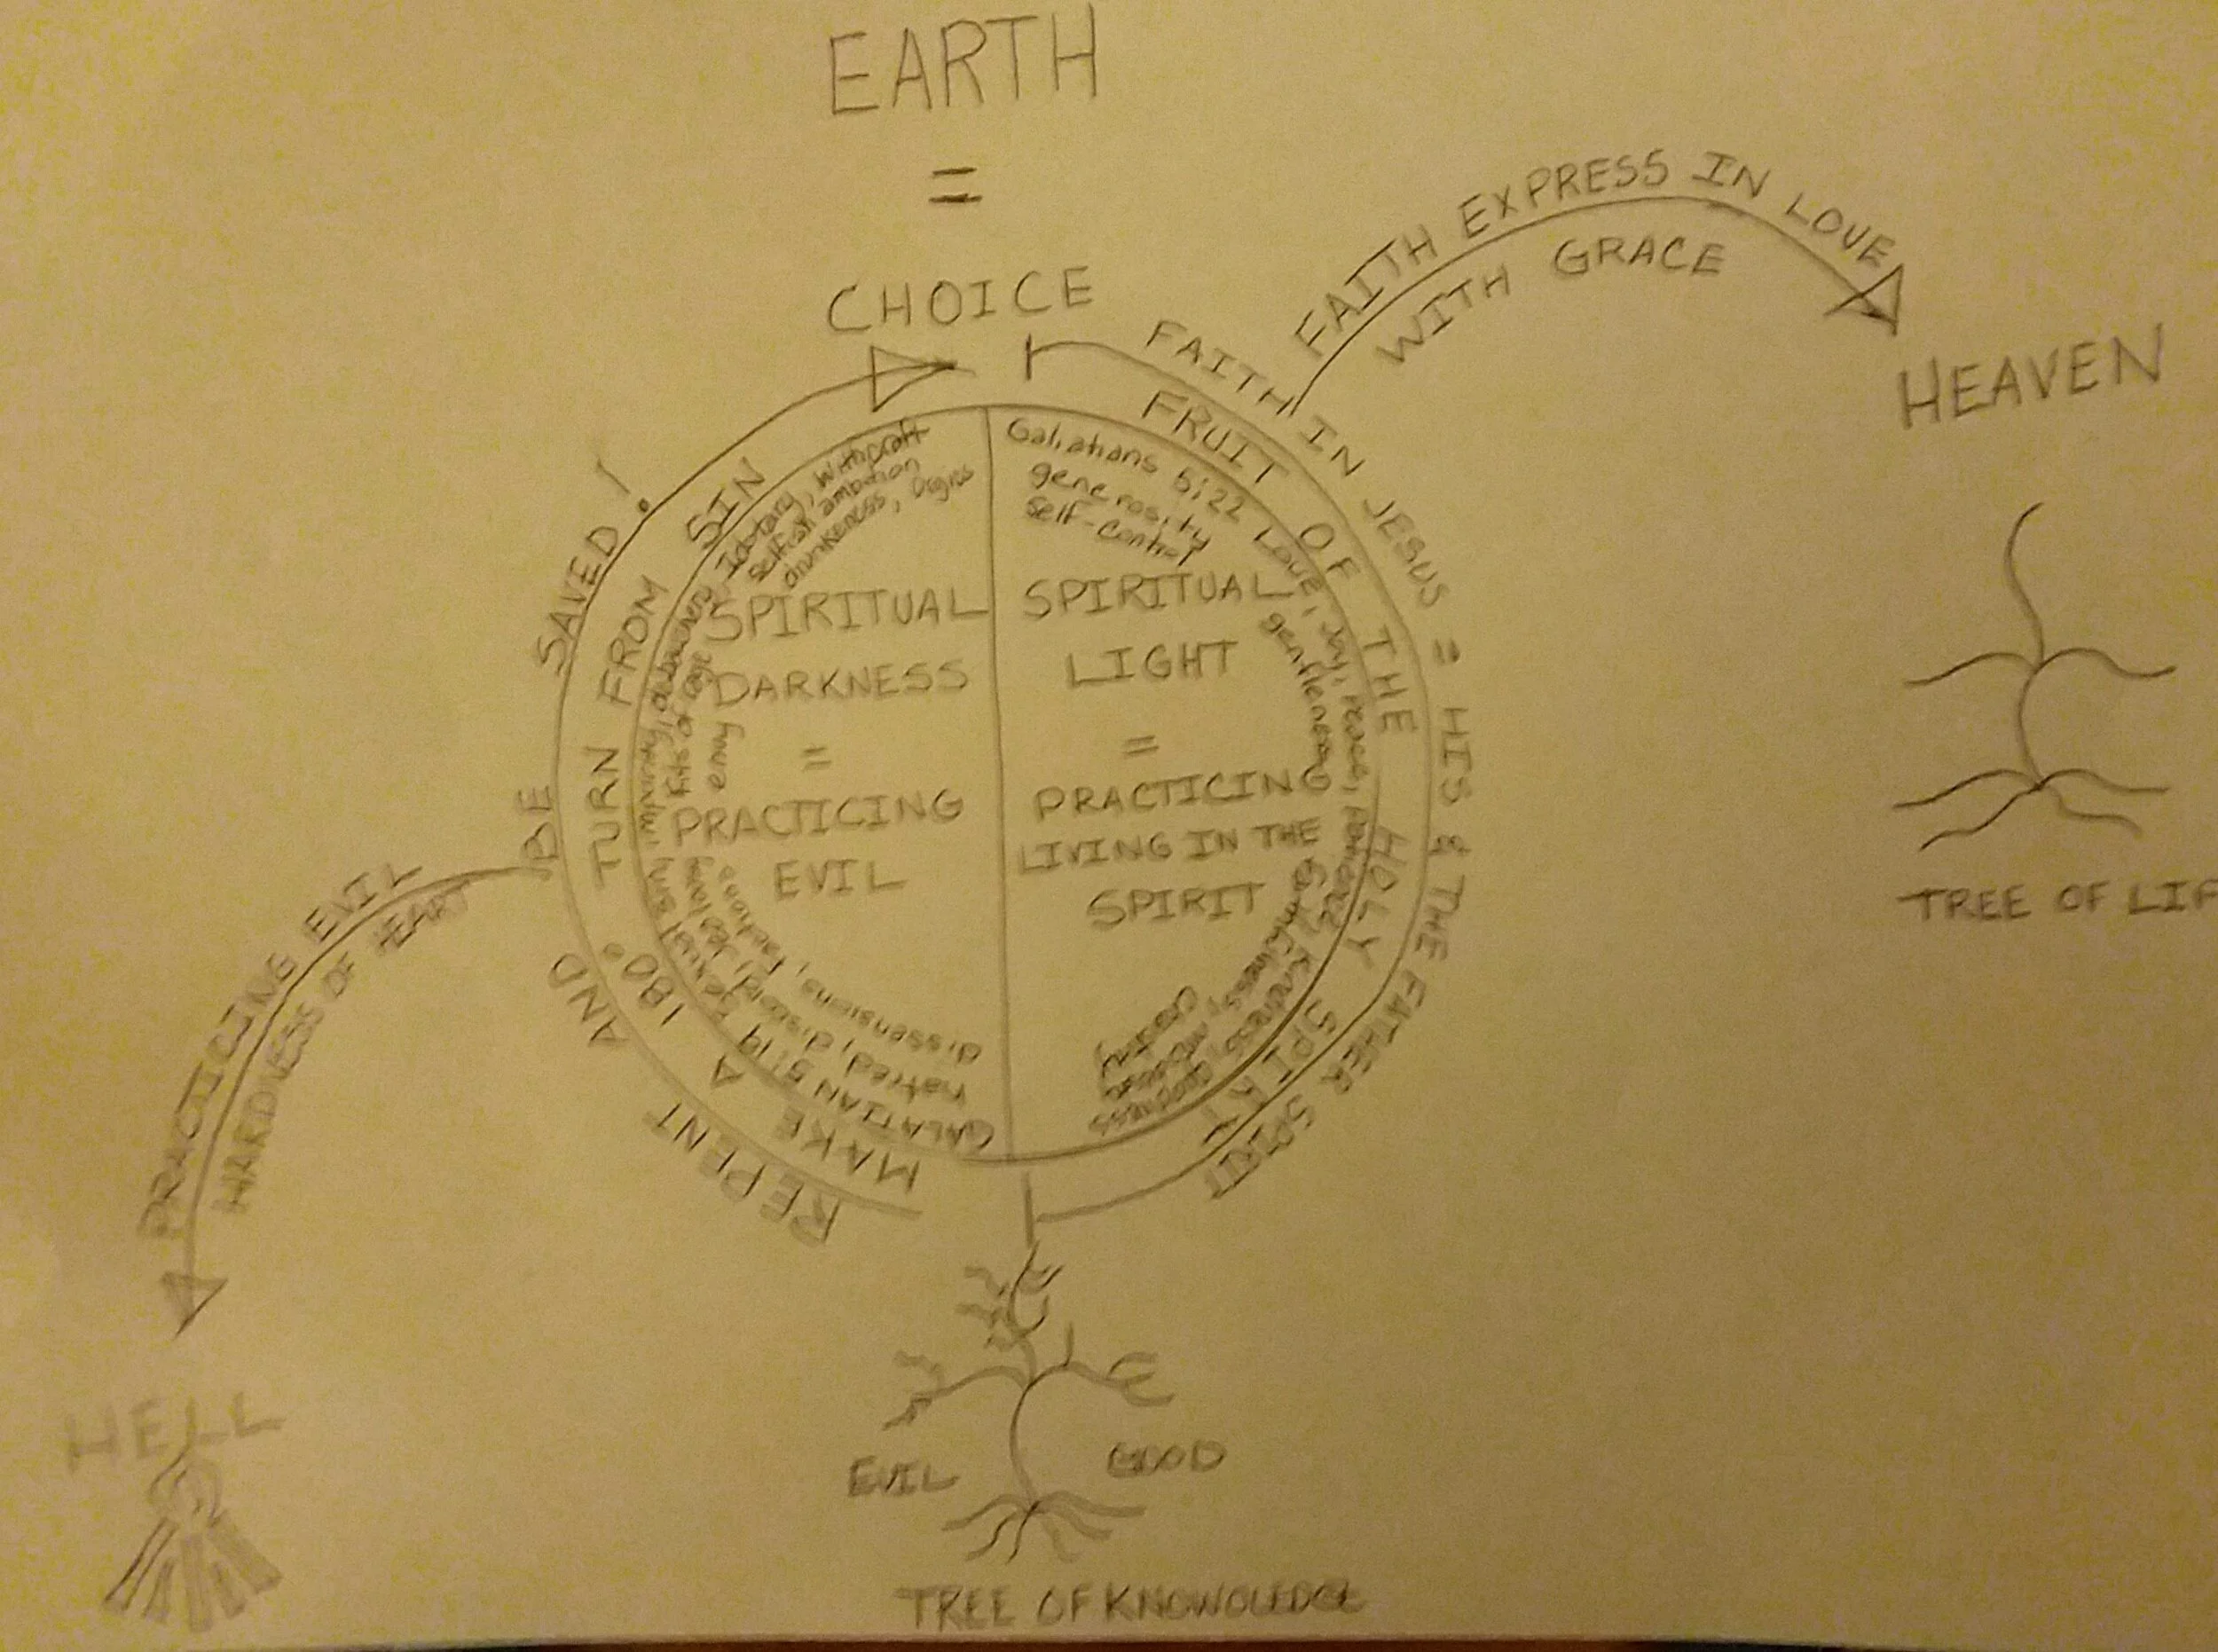 EARTH
=
CHOICE
FAITH EXPRESS IN LOVE
WITH GRACE
HEAVEN
TREE OF LIF
FAITH IN JESUS = HIS & THE FATHER SPIRIT
FRUIT OF THE HOLY SPIRIT
Galiathans 5:22 Love, Joy, Peace, Patience, Kindness, Goodness
generosity gentleness faithfulness
self-control
chastity
SPIRITUAL
LIGHT
=
PRACTICING
LIVING IN THE
SPIRIT
REPENT AND BE SAVED!
MAKE A 180° TURN FROM SIN
GALATIAN 5:19 impurity, Idolatry,
hatred, discord, jealousy, fits of rage selfish ambition
dissensions, factions, envy drunkeness, Orgies
SPIRITUAL
DARKNESS
=
PRACTICING
EVIL
PRACTICING EVIL
HARDNESS OF HEART
HELL
EVIL
GOOD
TREE OF KNOWOLEDGE